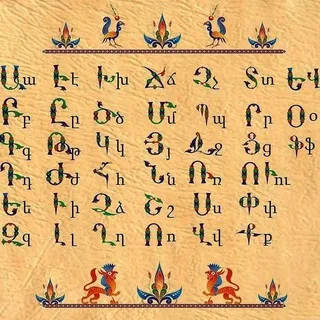 Աա Էէ Խխ Ճճ Չչ Տտ ԵՎ
Բբ Ըը Ծծ Մմ Պպ Րր Օօ
Գգ Թթ Կկ Յյ Ջջ Ցց Ֆֆ
Դդ Ժժ Հհ Նն Ռռ Ուու
Եե Իի Ձձ Շշ Սս Փփ
Զզ Լլ Ղղ Ոո Վվ Քք